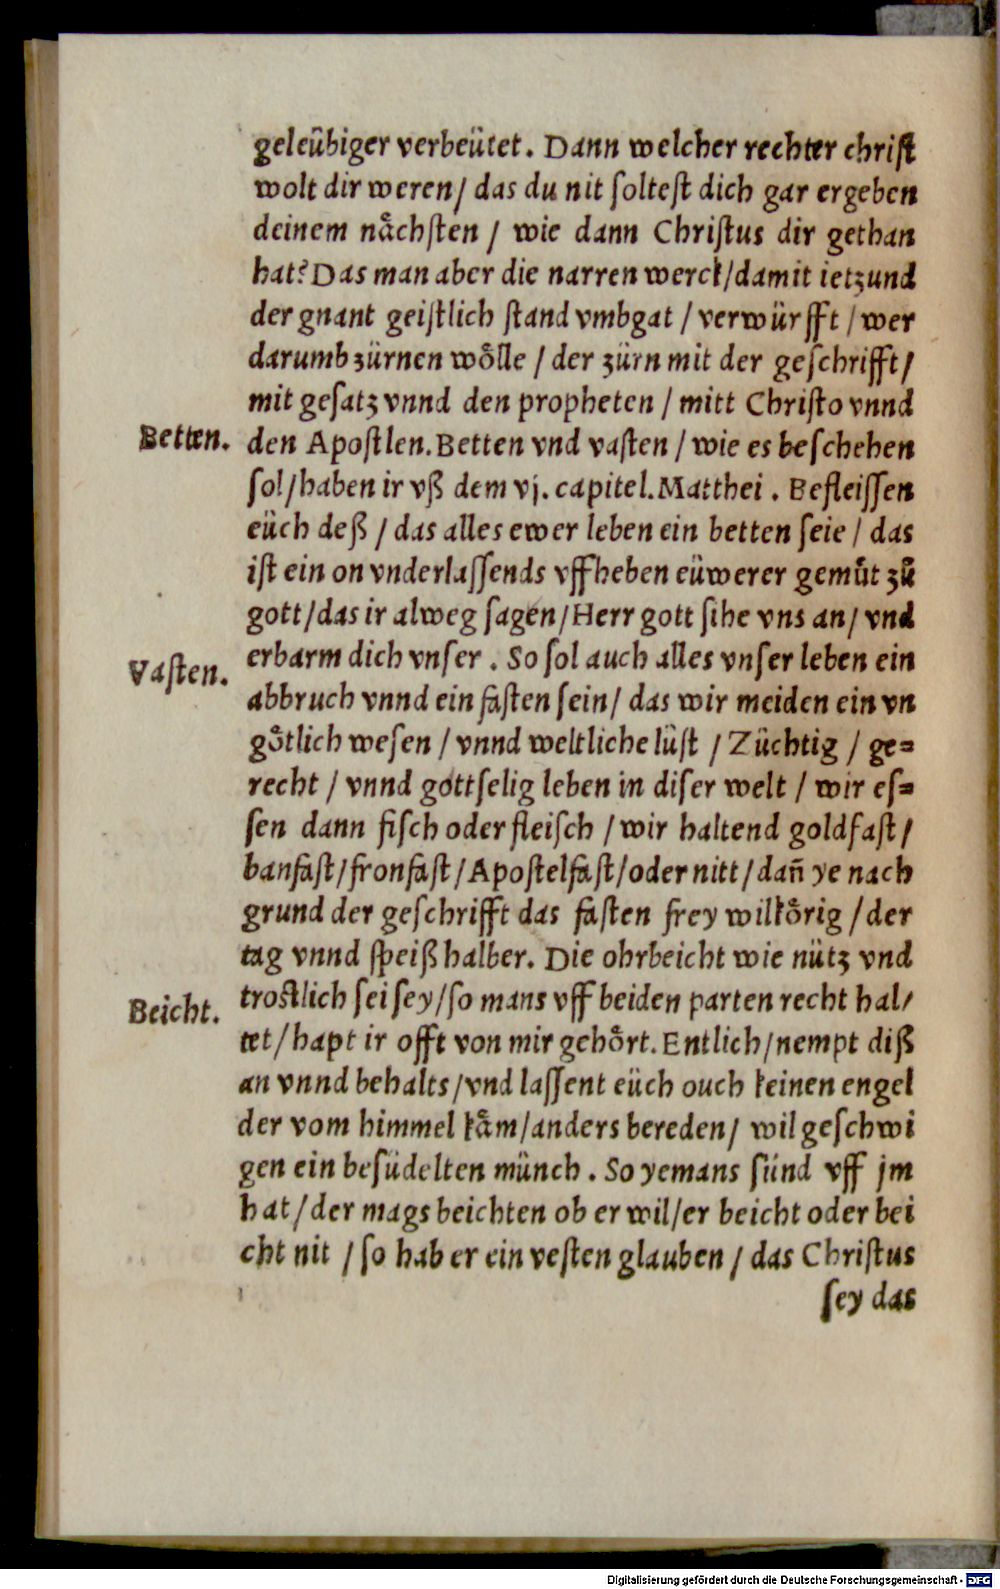 geleübiger verbeütet. Dann welcher rechter chriſt
wolt dir weren/ das du nit ſolteſt dich gar ergeben
deinem nåchſten / wie dann Chriſtus dir gethan
hat? Das man aber die narren werck/damit ietzund
der gnant geiſtlich ſtand vmbgat / verwürfft / wer
darumb zürnen wölle / der zürn mit der geſchrifft/
mit geſatz vnnd den propheten / mitt Chriſto vnnd
Betten.
den Apoſtlen. Betten vnd vaſten / wie es beſchehen
ſol/haben ir vß dem vj. capitel. Matthei . Befleiſſen
eüch deß / das alles ewer leben ein betten ſeie / das
iſt ein on vnderlaſſends vffheben eüwerer gemůt zů
gott/das ir alweg ſagen/Herr gott ſihe vns an/ vnd
Vaſten.
erbarm dich vnſer . So ſol auch alles vnſer leben ein
abbruch vnnd ein faſten ſein/ das wir meiden ein vn
gôtlich weſen / vnnd weltliche lüſt / Züchtig / ge=
recht / vnnd gottſelig leben in diſer welt / wir eſ=
ſen dann fiſch oder fleiſch / wir haltend goldfaſt/
banfaſt/fronfaſt/Apoſtelfaſt/oder nitt/dañ ye nach
grund der geſchrifft das faſten frey wilkôrig / der
tag vnnd ſpeiß halber. Die ohrbeicht wie nütz vnd
Beicht.
troſtlich ſei ſey/ſo mans vff beiden parten recht hal/
tet/hapt ir offt von mir gehôrt. Entlich/nempt diß
an vnnd behalts/vnd laſſent eüch ouch keinen engel
der vom himmel kåm/anders bereden/ wil geſchwi
gen ein beſüdelten münch . So yemans ſünd vff jm
hat/der mags beichten ob er wil/er beicht oder bei
cht nit / ſo hab er ein veſten glauben / das Chriſtus
ſey das
Digitalisierung gefördert durch die Deutsche Forschungsgemeinschaft - DFG